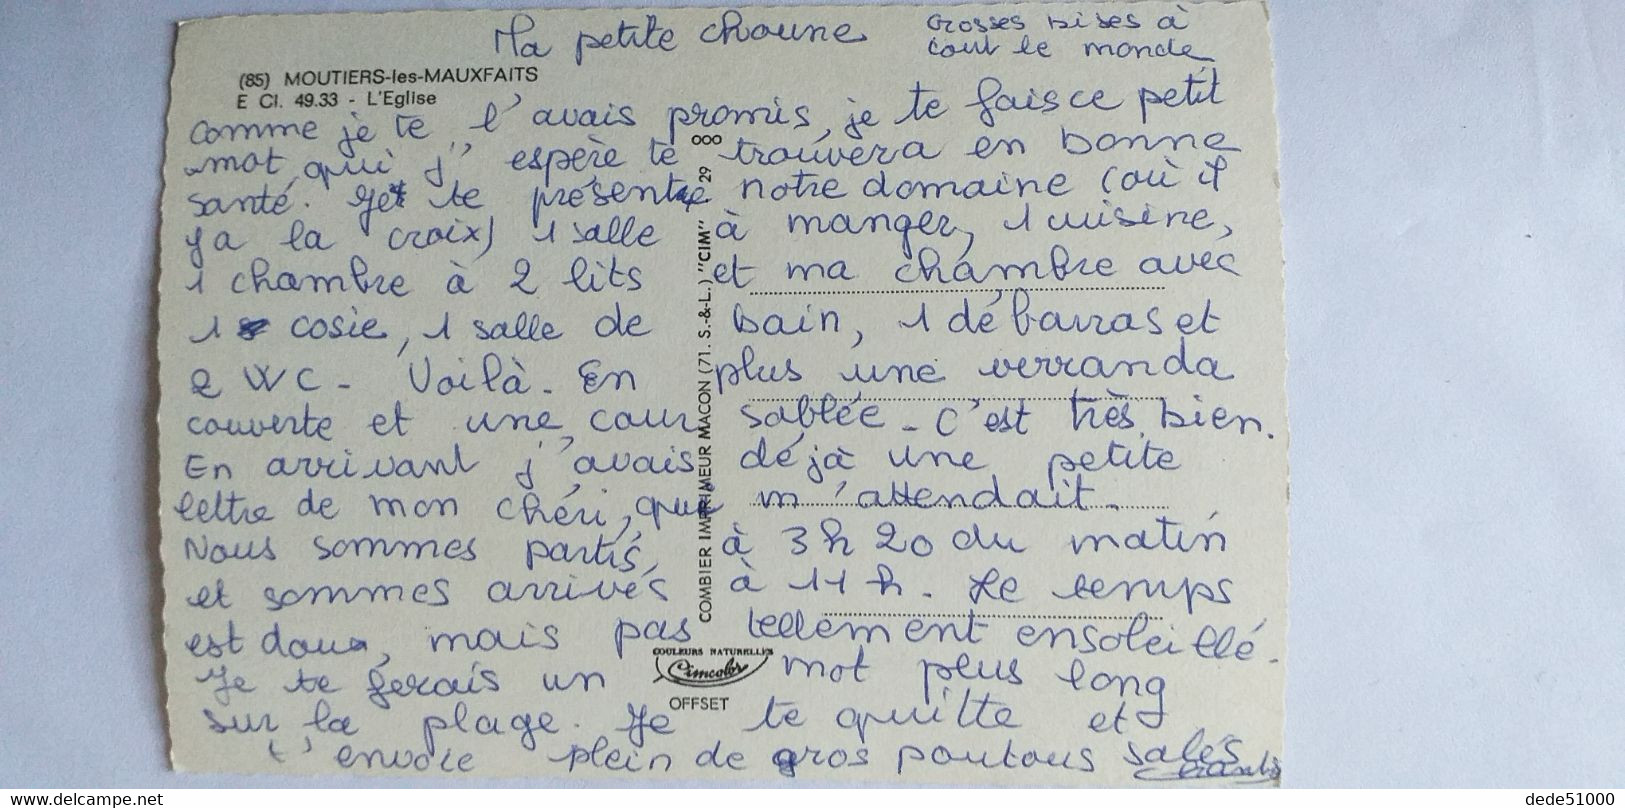 Ma petite choune
Grosses bises à
tout le monde
(85) MOUTIERS-les-MAUXFAITS
E Cl. 49.33 - L'Eglise
comme je te l'avais promis, je te fais ce petit
mot qui j'espère te trouvera en bonne
santé. Je te présente notre domaine (où il
y a la croix) 1 salle à manger, 1 cuisine,
1 chambre à 2 lits et ma chambre avec
1 cosie, 1 salle de bain, 1 débarras et
2 WC - Voilà - En plus une verranda
couverte et une cour sablée - C'est très bien.
En arrivant j'avais déjà une petite
lettre de mon chéri, qui m'attendait.
Nous sommes partis, à 3h20 du matin
et sommes arrivés à 11h. Le temps
est doux, mais pas tellement ensoleillé.
Je te ferais un mot plus long
sur la plage. Je te quitte et
t'envoie plein de gros poutous salés
ooo
COMBIER IMPRIMEUR MACON (71. S.-&-L.) "CIM" 29
COULEURS NATURELLES
Cimcolor
OFFSET
delcampe.net
dede51000